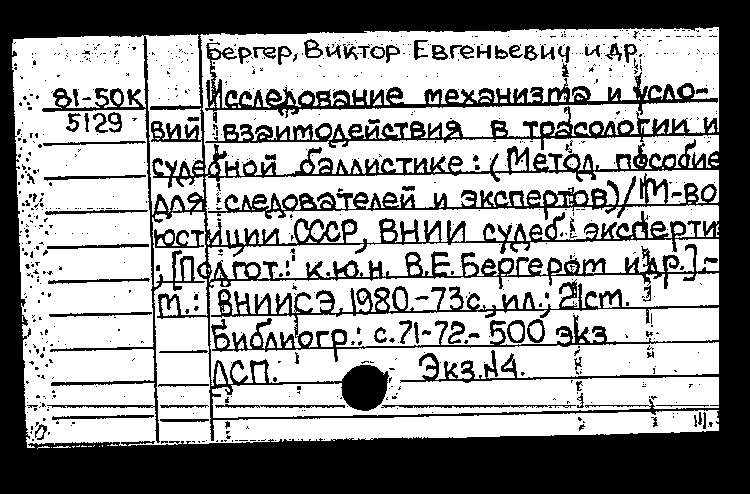 Бергер, Виктор Евгеньевич и др.
81-50К Исследование механизма и усло-
5129 вий взаимодействия в трасологии и
судебной баллистике: (Метод. пособие
для следователей и экспертов)/М-во
юстиции СССР, ВНИИ судеб. эксперти
; [Подгот.: к.ю.н. В.Е.Бергером и др.].-
М.: ВНИИСЭ, 1980.-73с., ил.; 21см.
Библиогр.: с.71-72.- 500 экз
ДСП. Экз.№4.